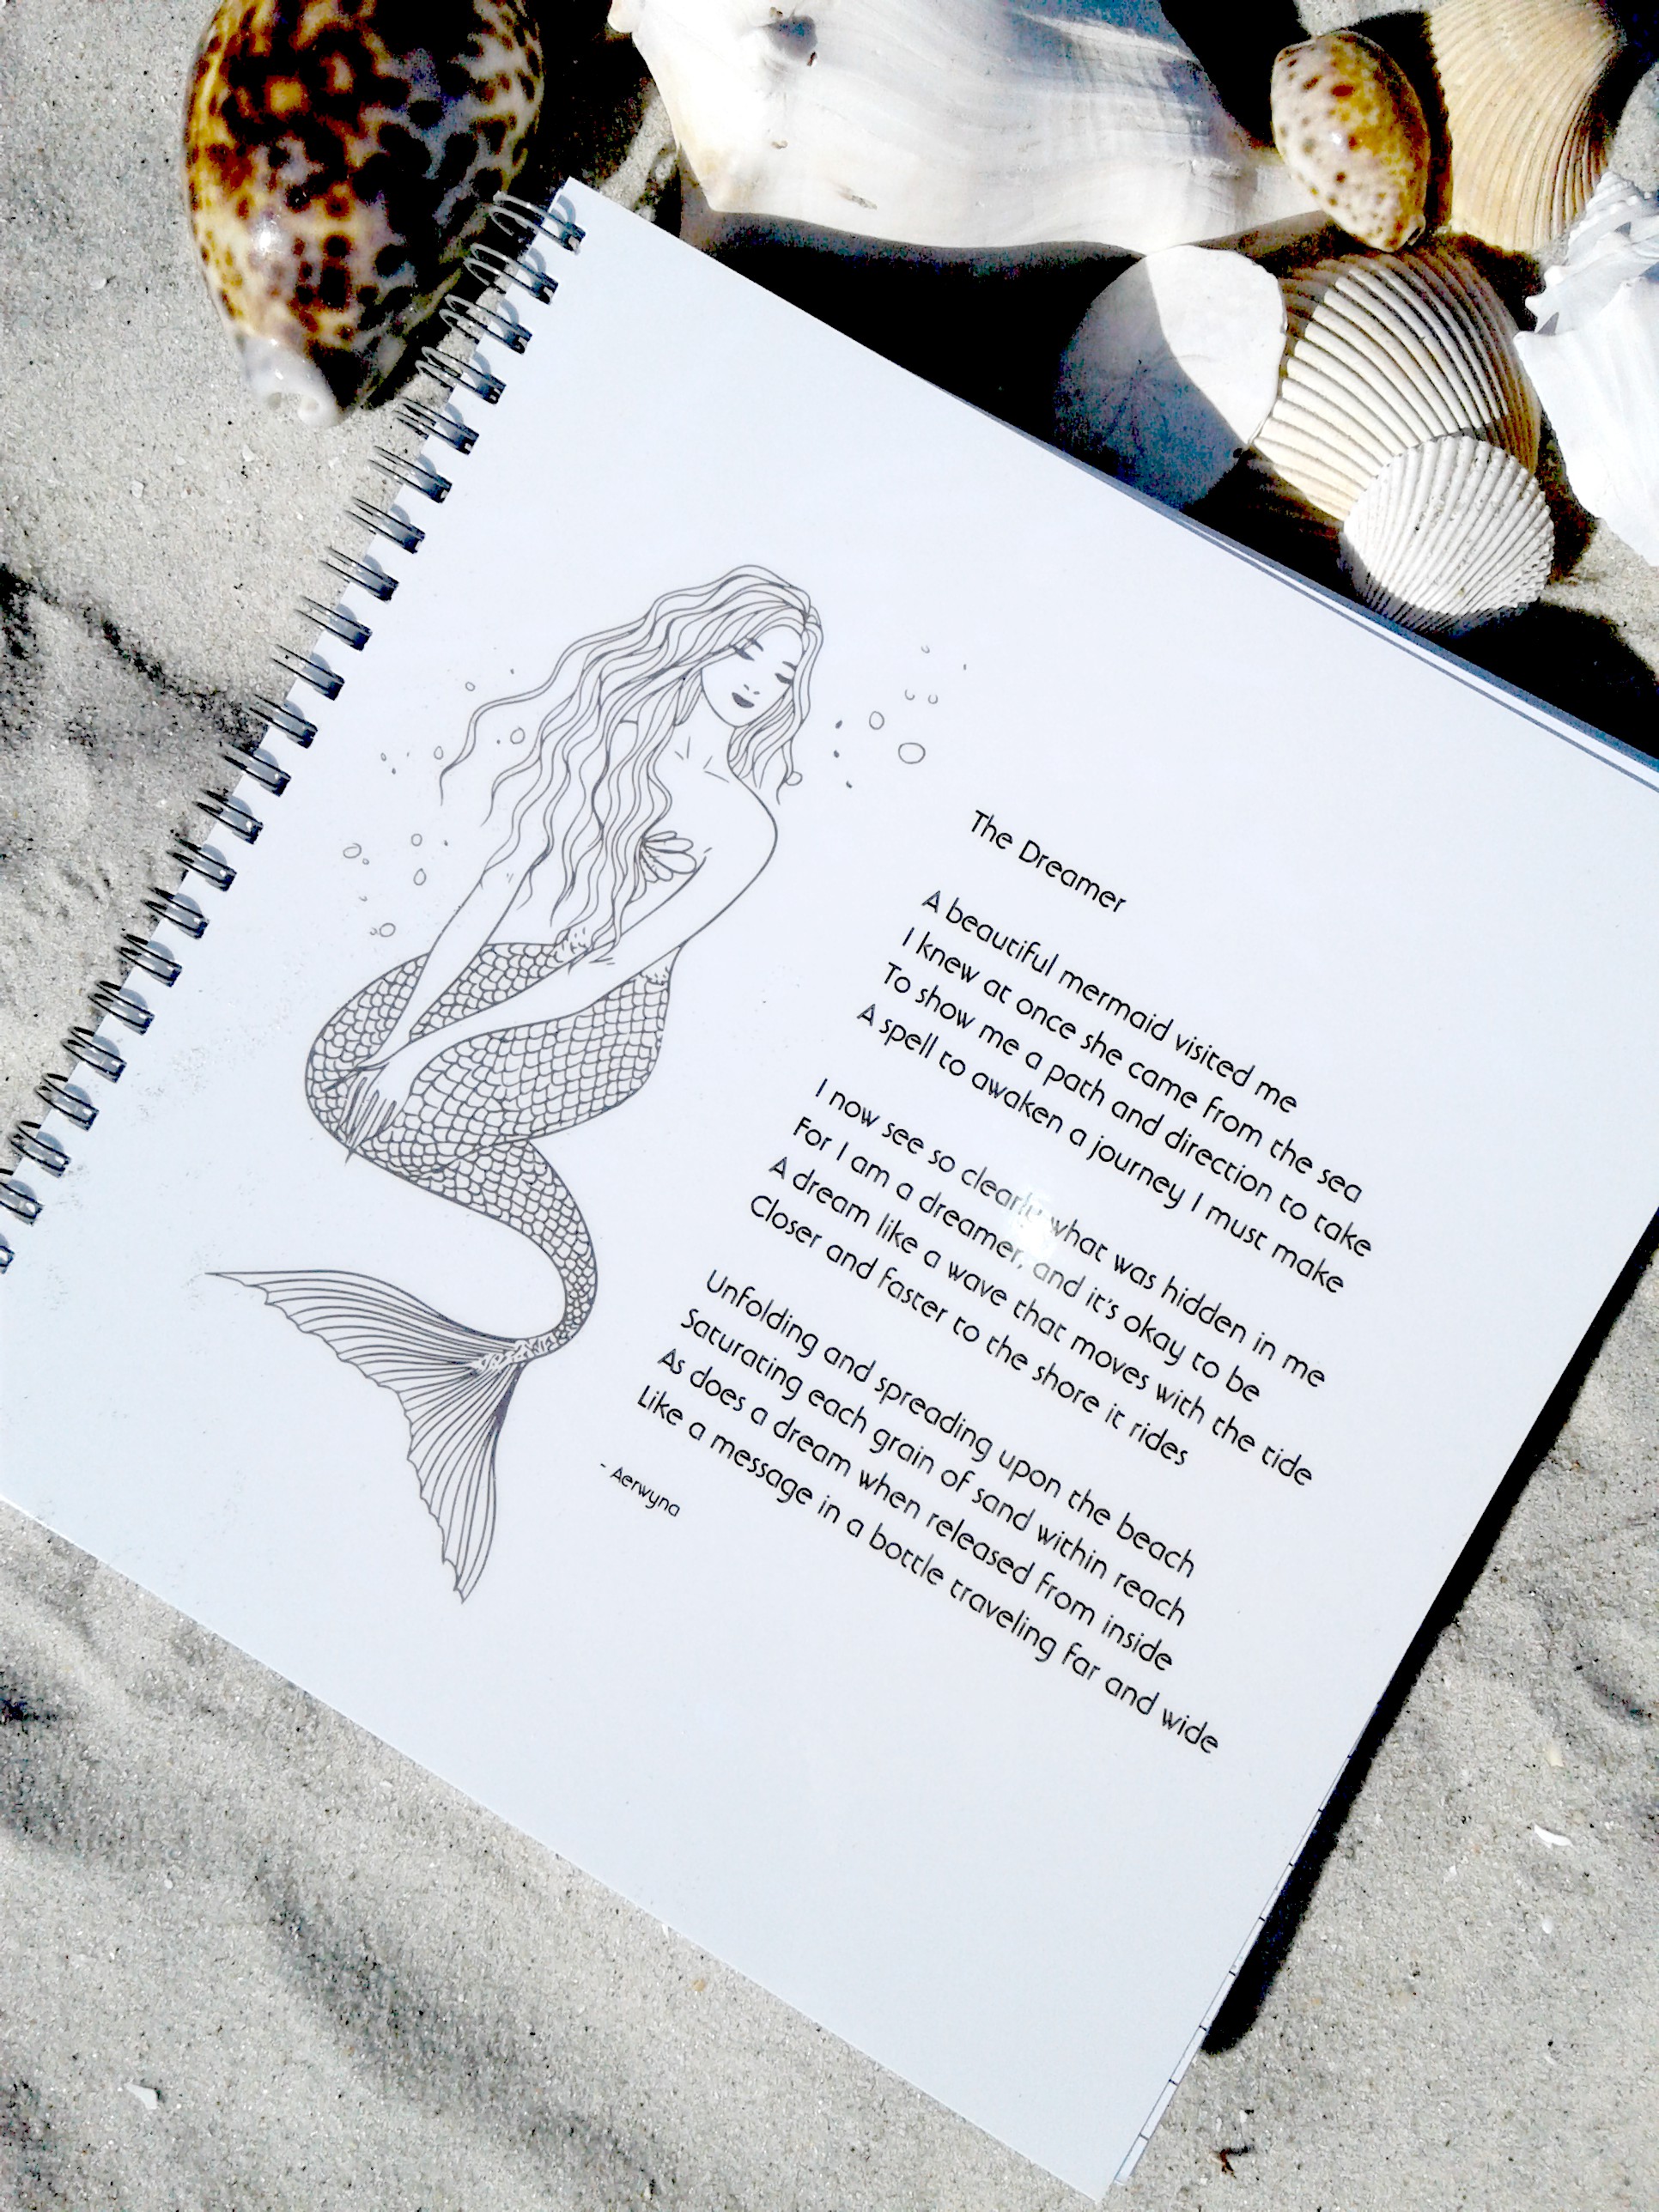 The Dreamer
A beautiful mermaid visited me
I knew at once she came from the sea
To show me a path and direction to take
A spell to awaken a journey I must make
I now see so clearly what was hidden in me
For I am a dreamer, and it's okay to be
A dream like a wave that moves with the tide
Closer and faster to the shore it rides
Unfolding and spreading upon the beach
Saturating each grain of sand within reach
As does a dream when released from inside
Like a message in a bottle traveling far and wide
- Aerwyna